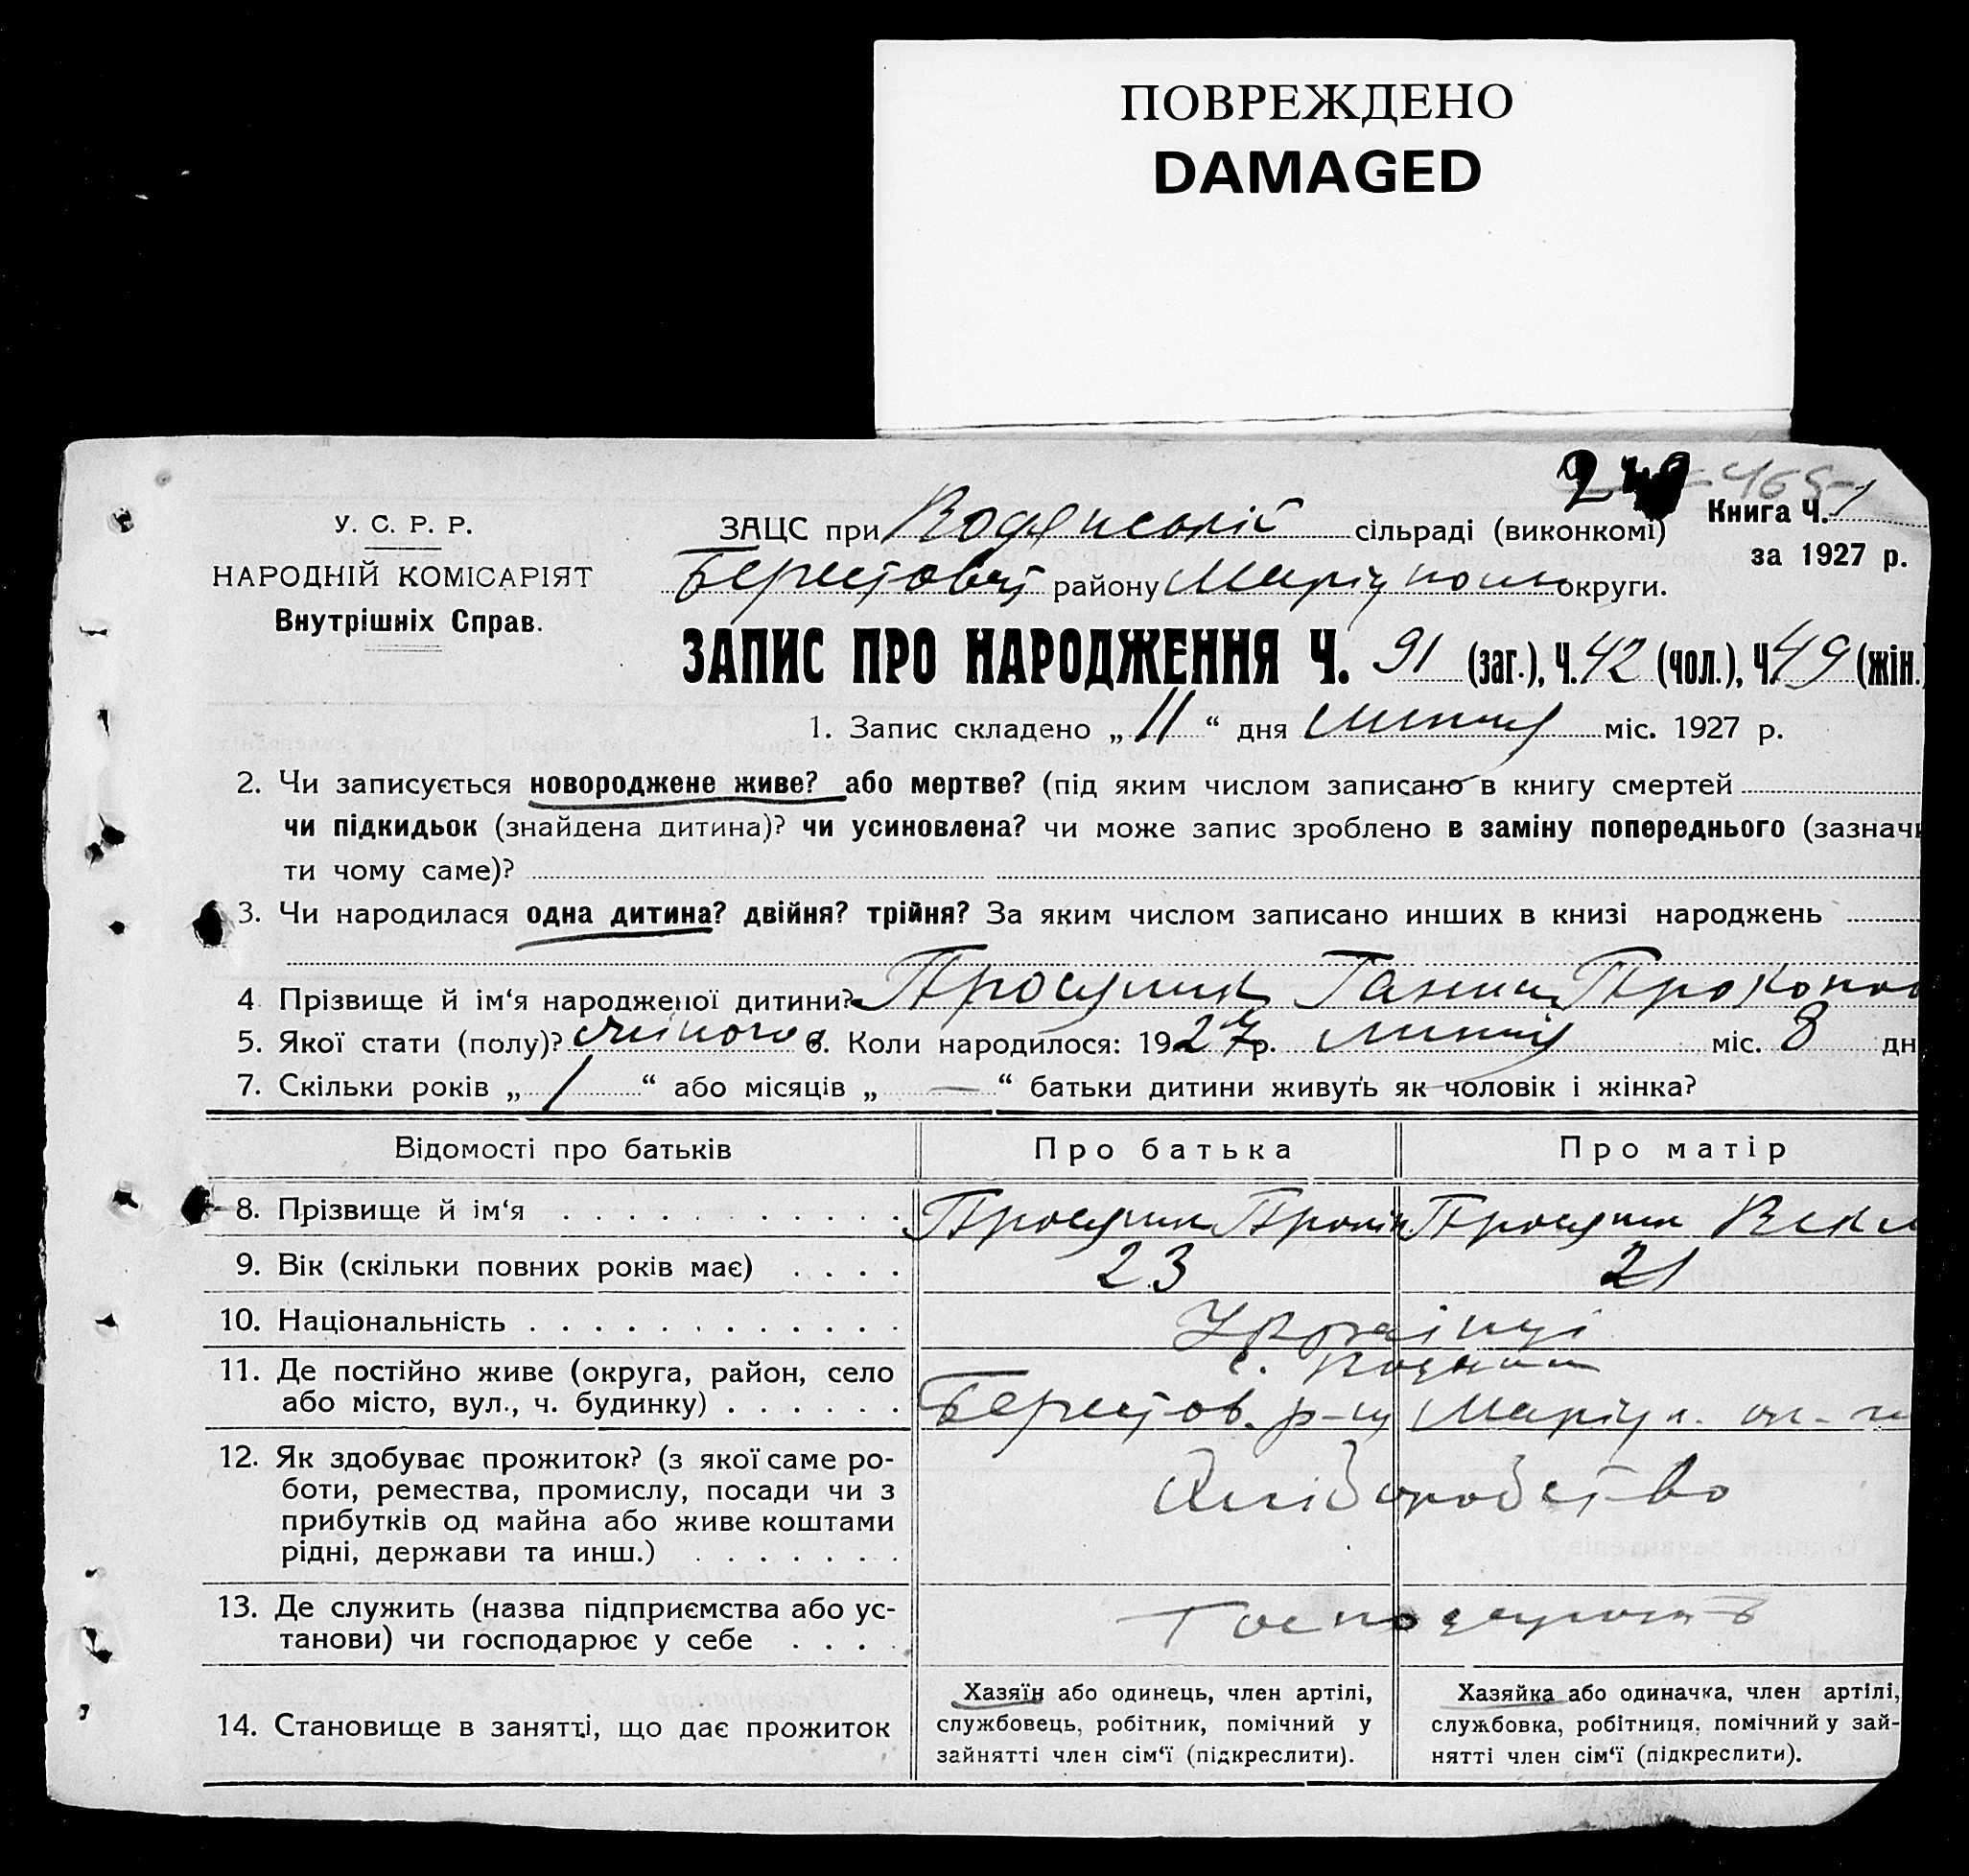 ПОВРЕЖДЕНО
DAMAGED
У. С. Р. Р.
НАРОДНІЙ КОМІСАРІЯТ
Внутрішніх Справ.
ЗАЦС при Водянській сільраді (виконкомі)
Книга Ч. 1
за 1927 р.
району округи.
ЗАПИС ПРО НАРОДЖЕННЯ Ч. 91 (заг.), Ч. 42 (чол.), Ч. 49 (жін.)
1. Запис складено „11“ дня липня міс. 1927 р.
2. Чи записується новороджене живе? або мертве? (під яким числом записано в книгу смертей
чи підкидьок (знайдена дитина)? чи усиновлена? чи може запис зроблено в заміну попереднього (зазначи
ти чому саме)?
3. Чи народилася одна дитина? двійня? трійня? За яким числом записано инших в книзі народжень
4 Прізвище й ім‘я народженої дитини? Ганна
5. Якої стати (полу)? жіночої 6. Коли народилося: 1927 р. липня міс. 8 дн
7. Скільки років „1“ або місяців „—“ батьки дитини живуть як чоловік і жінка?
Відомості про батьків Про батька Про матір
8. Прізвище й ім‘я
9. Вік (скільки повних років має) 23 21
10. Національність Українці
11. Де постійно живе (округа, район, село
або місто, вул., ч. будинку) Берестов. р-ну Маріуп.
12. Як здобуває прожиток? (з якої саме ро-
боти, ремества, промислу, посади чи з
прибутків од майна або живе коштами
рідні, держави та инш.)
Хліборобство
13. Де служить (назва підприємства або ус-
танови) чи господарює у себе
14. Становище в занятті, що дає прожиток
Хазяїн або одинець, член артілі,
службовець, робітник, помічний у
зайнятті член сім‘ї (підкреслити).
Хазяйка або одиначка, член артілі,
службовка, робітниця, помічний у зай-
нятті член сім‘ї (підкреслити).